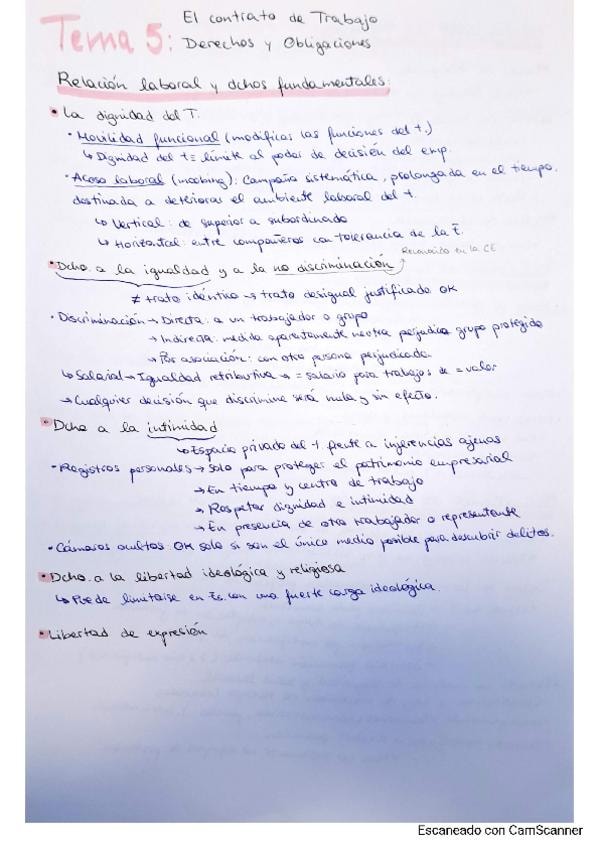 Tema 5: El contrato de Trabajo
Derechos y Obligaciones
Relación laboral y dchos fundamentales:
• La dignidad del T.
• Movilidad funcional (modificas las funciones del t.)
↳ Dignidad del t = límite al poder de decisión del emp.
• Acoso laboral (moobing): Campaña sistemática, prolongada en el tiempo,
destinada a deteriorar el ambiente laboral del t.
↳ Vertical: de superior a subordinado
↳ Horizontal: entre compañeros con tolerancia de la E.
Reconocido en la CE
• Dcho. a la igualdad y a la no discriminación
≠ trato idéntico → trato desigual justificado OK
• Discriminación → Directa: a un trabajador o grupo
→ Indirecta: medida aparentemente neutra perjudica grupo protegido
→ Por asociación: con otra persona perjudicada.
↳ Salarial → Igualdad retributiva → = salario para trabajos de = valor
→ Cualquier decisión que discrimine será nula y sin efecto.
• Dcho a la intimidad
↳ Espacio privado del t. frente a injerencias ajenas
• Registros personales → Solo para proteger el patrimonio empresarial
→ En tiempo y centro de trabajo
→ Respetar dignidad e intimidad
→ En presencia de otro trabajador o representante
• Cámaras ocultas OK solo si son el único medio posible para descubrir delitos.
• Dcho. a la libertad ideológica y religiosa
↳ Puede limitarse en Es. con una fuerte carga ideológica.
• Libertad de expresión
Escaneado con CamScanner